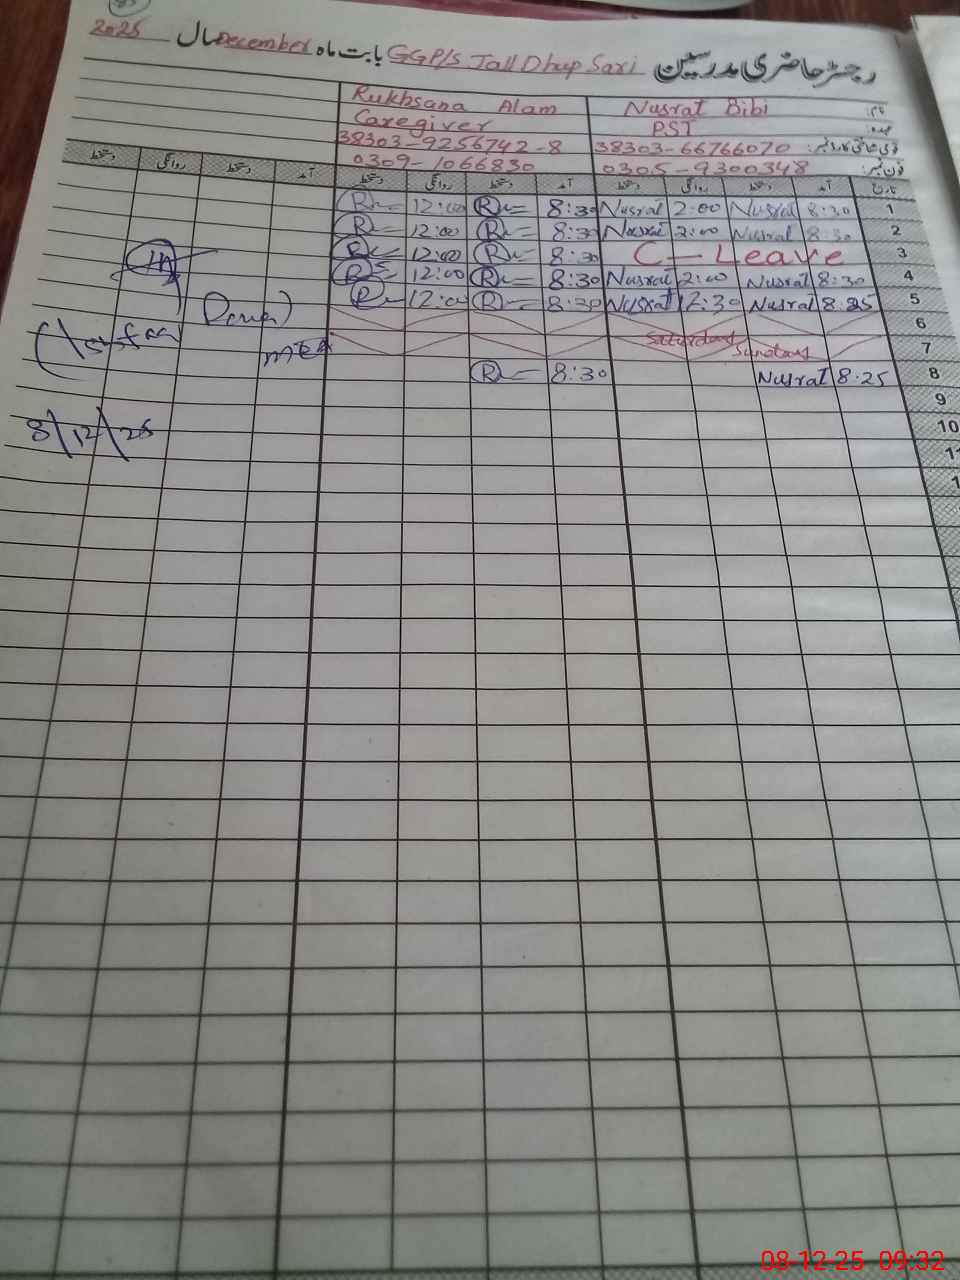 رجسٹر حاضری مدرسین GGP/S Jall Dhup Sari بابت ماہ December سال 2025
نام: Nusrat Bibi Rukhsana Alam
عہدہ: PST Caregiver
قومی شناختی کارڈ نمبر: 38303-66766070 38303-9256742-8
فون نمبر: 0305-9300348 0309-1066830
تاریخ آمد دستخط روانگی دستخط آمد دستخط روانگی دستخط آمد دستخط روانگی دستخط
1 8:30 Nusrat 2:00 Nusrat 8:30 R 12:00 R
2 8:30 Nusrat 2:00 Nusrat 8:30 R 12:00 R
3 C-Leave 8:30 R 12:00 R
4 8:30 Nusrat 2:00 Nusrat 8:30 R 12:00 R
5 8:25 Nusrat 12:30 Nusrat 8:30 R 12:00 R
6
Saturday
7 Sunday
8 8:25 Nusrat 8:30 R
9
10
11
8/12/25
08-12-25 09:32